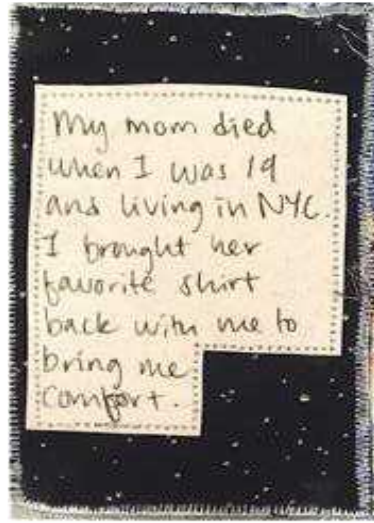 My mom died
when I was 19
and living in NYC.
I brought her
favorite shirt
back with me to
bring me
comfort.